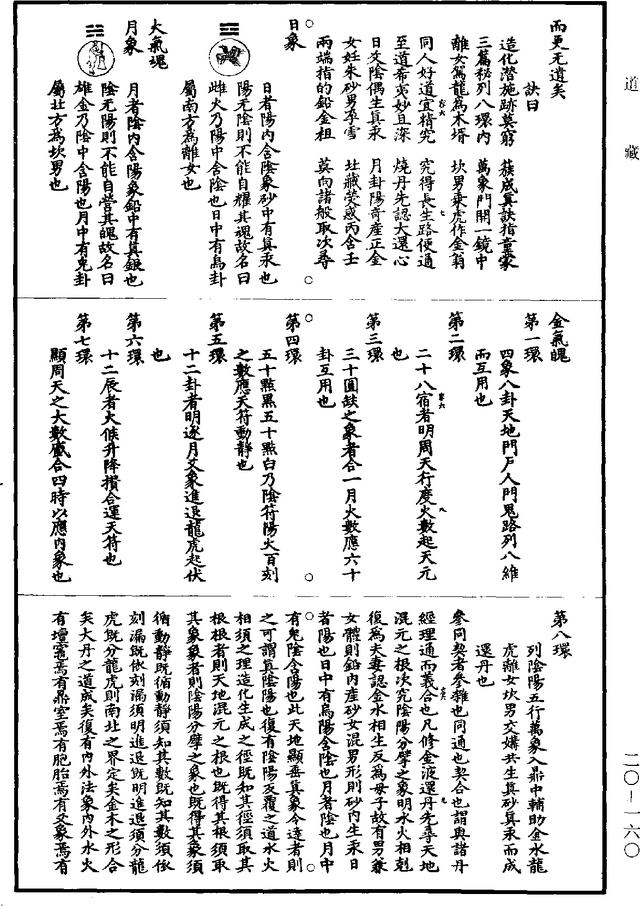 道藏
而更无遺矣
訣曰
造化潛施跡莫窮　簇成真訣指童蒙
三篇秘列八環內　萬象門開一鏡中
離女駕龍為木壻　坎男乘虎作金翁
同人好道宜精究　究得長生路便通
至道希夷妙且深　燒丹先認大還心
日爻陰偶生真汞　月卦陽奇產正金
女妊朱砂男孕雪　北藏熒惑丙含壬
兩端指的鉛金祖　莫向諸般取次尋
日象
日者陽內含陰象砂中有真汞也
陽无陰則不能自耀其魂故名曰
雌火乃陽中含陰也日中有烏卦
屬南方為離女也
大氣魂
月象
月者陰內含陽象鉛中有真銀也
陰无陽則不能自營其魄故名曰
雄金乃陰中含陽也月中有兔卦
屬北方為坎男也
金氣魄
第一環
四象八卦天地門戶人門鬼路列八維
而互用也
第二環
二十八宿者明周天行度火數起天元
也
第三環
三十圓缺之象者合一月火數應六十
卦互用也
第四環
五十點黑五十點白乃陰符陽火百刻
之數應天符動靜也
第五環
十二卦者明逐月爻象進退龍虎起伏
也
第六環
十二辰者火候升降攢合運天符也
第七環
顯周天之大數盛合四時以應內象也
第八環
列陰陽五行萬象入鼎中輔助金水龍
虎離女坎男交媾共生真砂真汞而成
還丹也
參同契者參雜也同通也契合也謂與諸丹
經理通而義合也凡修金液還丹先尋天地
混元之根次究陰陽分擘之象明水火相剋
復為夫妻認金水相生反為母子故有男兼
女體則鉛內產砂女混男形則砂內生汞日
者陽也日中有烏陽含陰也月者陰也月中
有兔陰含陽也此天地顯垂真象令達者則
之可謂真陰陽也復有陰陽反覆之道水火
相須之理造化生成之徑既知其徑須取其
根根者則天地混元之根也既得其根須取
其象象者則陰陽分擘之象也既得其象須
循動靜既循動靜須知其數既知其數須依
刻漏既依刻漏須明進退既明進退須分龍
虎既分龍虎則南北之界定矣金木之形合
矣大丹之道成矣復有內外法象內外水火
有壇竈焉有鼎室焉有胞胎焉有爻象焉有
二〇—一六〇